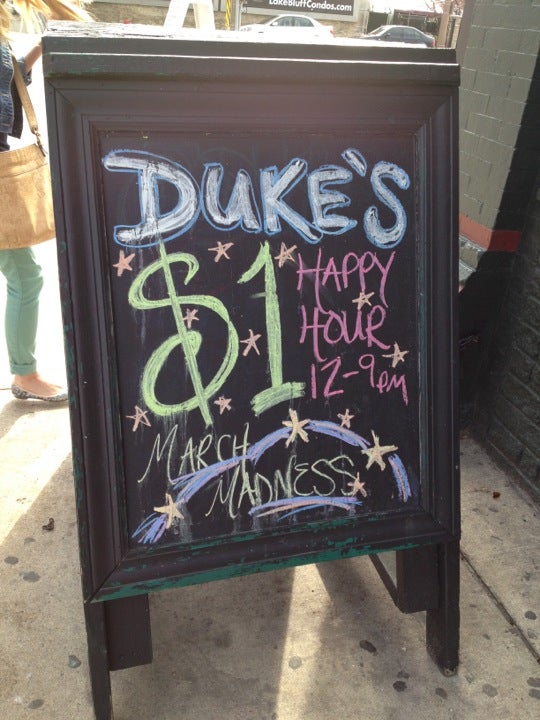 LakeBluffCondos.com
DUKE'S
$1
HAPPY
HOUR
12-9pm
MARCH
MADNESS